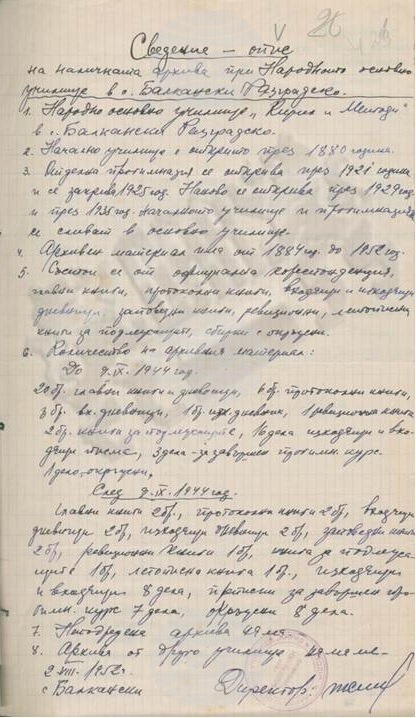 V 26
Сведение – опис
на наличната архива при Народното основно
училище в с. Балкански Разградско.
1. Народно основно училище „Кирил и Методи"
в с. Балкански Разградско.
2. Начално училище е открито през 1880 година.
3. Отделна прогимназия се открива през 1921 година
и се закрива 1925 год. Наново се открива през 1929 год
и през 1935 год. началното училище и прогимназия
се сливат в основно училище.
4. Архивен материал има от 1884 год. до 1952 год.
5. Състои се от официална кореспонденция,
главни книги, протоколни книги, входящи и изходящи
дневници, заповедни книги, ревизионни, летописни
книги за подмладиците, сбирки с окръжни.
6. Количество на архивния материал:
До 9.IX.1944 год.
20 бр. главни книги и дневници, 6 бр. протоколни книги,
3 бр. вх. дневници, 1 бр. изх. дневник, 1 ревизионна книга
2 бр. книги за 16 дела изходящи и вхо-
дящи писма, 3 дела - за завършен прогимн. курс
1 дело окръжни.
След 9.IX.1944 год.
Главни книги 2 бр., протоколни книги 2 бр, входящи
дневници 2 бр, изходящи дневници 2 бр, заповедни книги
2 бр, ревизионни книги 1 бр, книга за
1 бр, летописна книга 1 бр., изходящи
и входящи 8 дела, преписки за завършен про-
гимн. курс 7 дела, окръжни 8 дела.
7. архива няма
8. Архива от друго училище няма
2.VIII.1952 г.
с Балкански Директор: